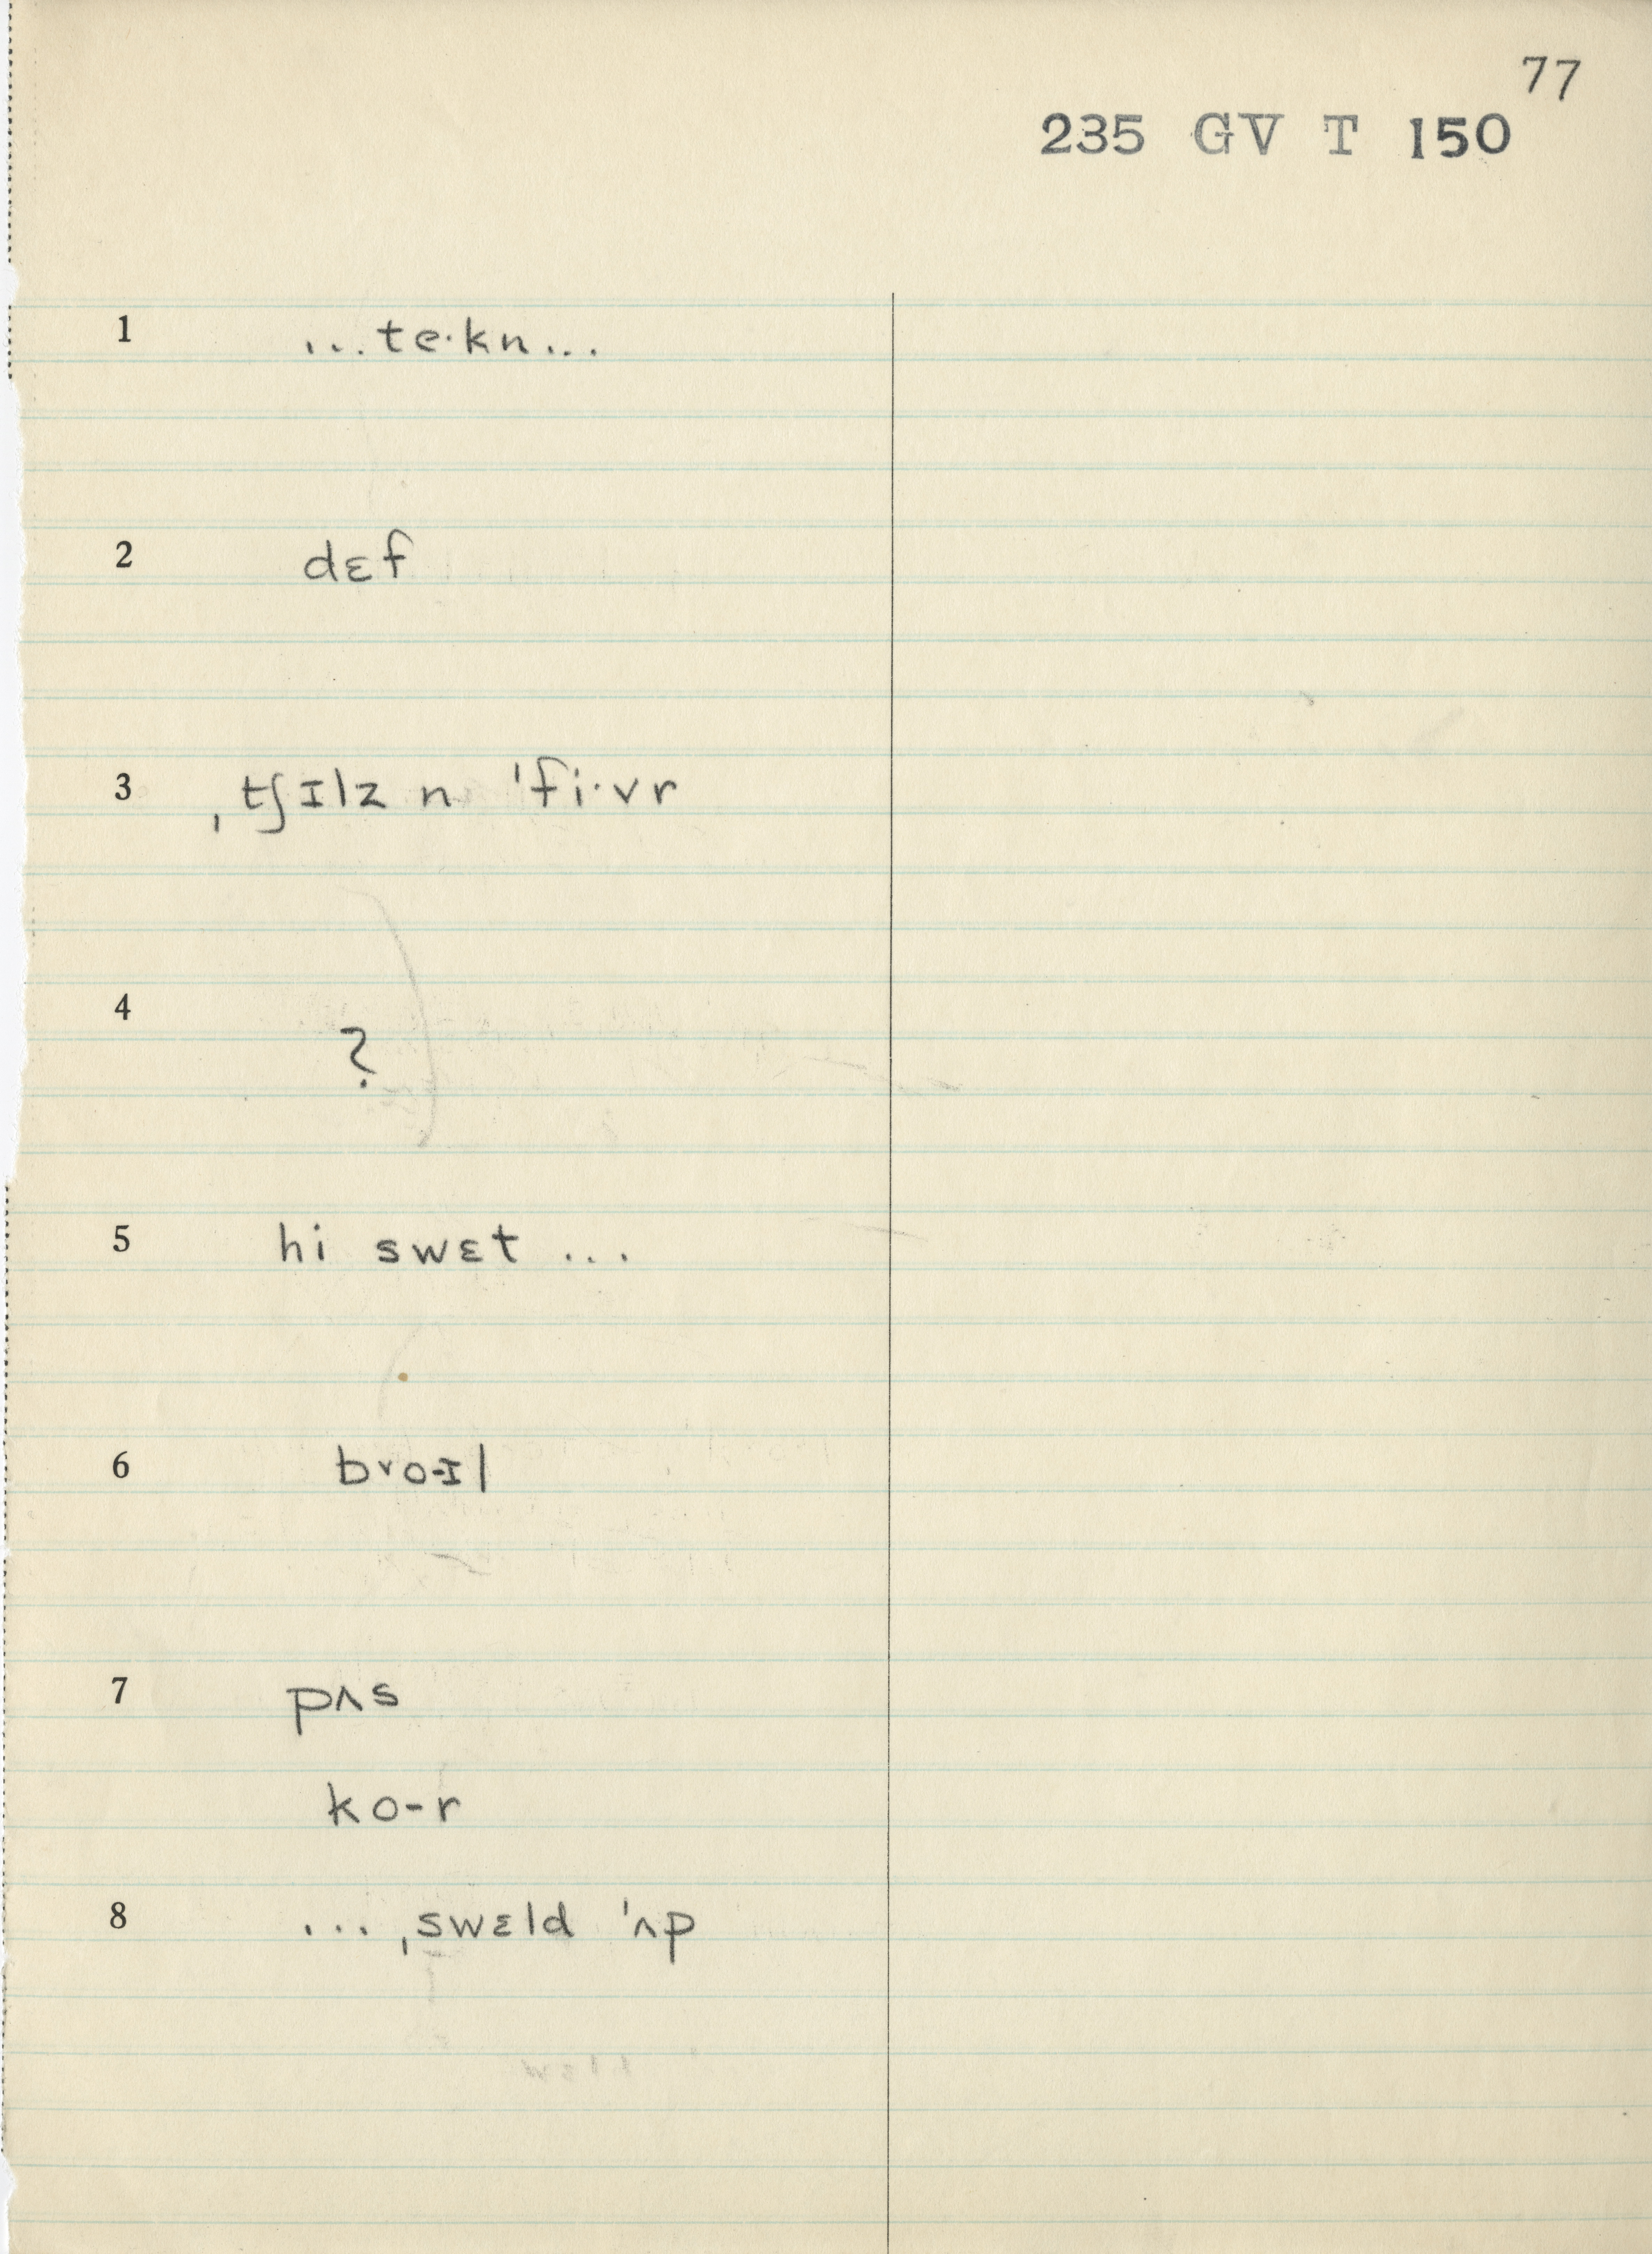 77
235 GV T 150
1 ...te·kn...
2 dɛf
3 ˌtʃɪlz n ˈfi·vr
4 ?
5 hi swɛt ...
6 brɔ-ɪl
7 pʌs
ko-r
8 ... ˌswɛld ˈʌp